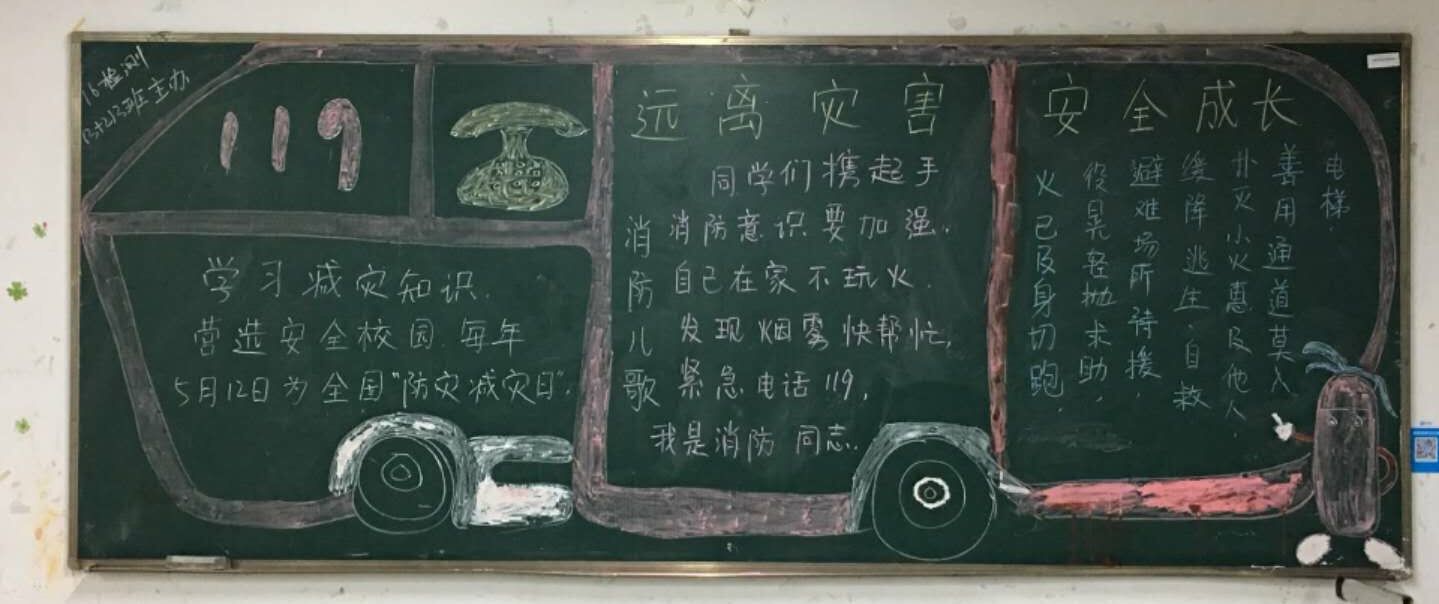 16检测
班主办
119
学习减灾知识.
营造安全校园.每年
5月12日为全国"防灾减灾日".
远离灾害
消防儿歌
同学们携起手
消防意识要加强.
自己在家不玩火.
发现烟雾快帮忙,
紧急电话119,
我是消防同志.
安全成长
火已及身切跑,
晃轻抛求助,
避难场所待援,
缓降逃生自救
扑灭小火惠及他人.
善用通道莫入
电梯.